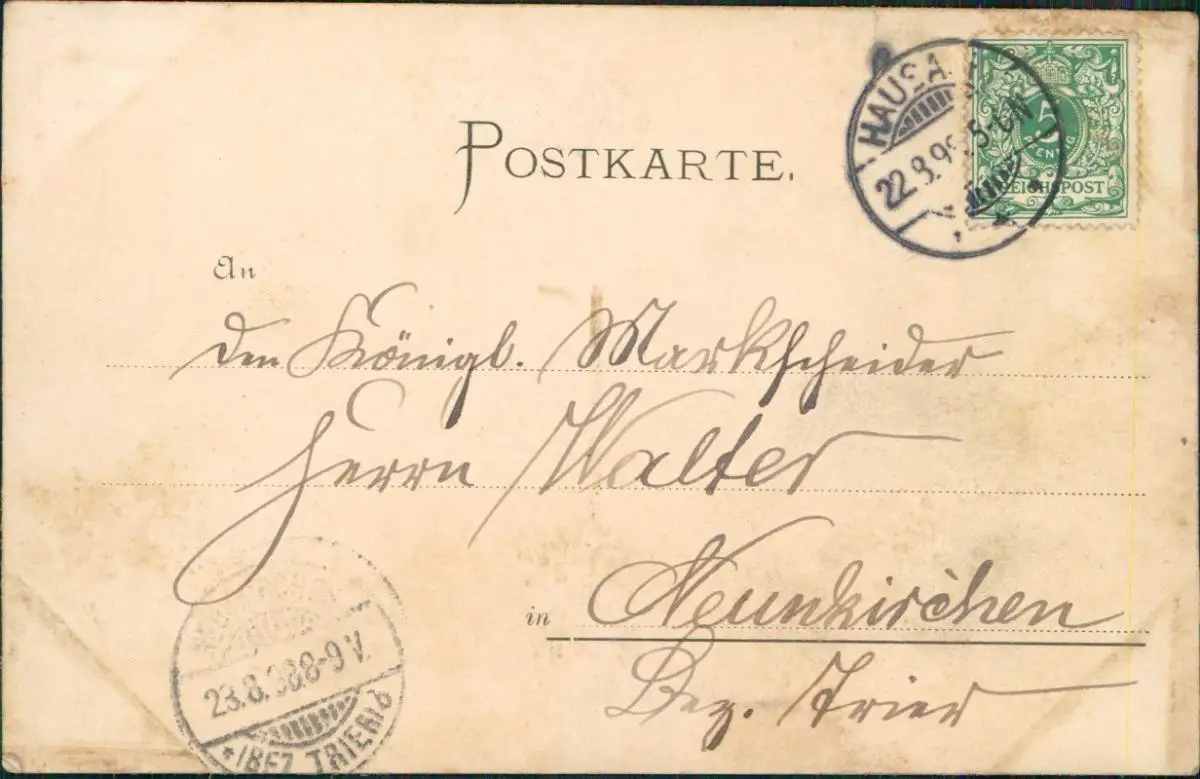 POSTKARTE.
HAUSA
22.8.9 5-6N
5
PFENNIG
REICHSPOST
An
den Königl. Markscheider
Herrn Walter
in Neunkirchen
Bez. Trier
23.8.98 8-9 V.
*(BEZ TRIER) b